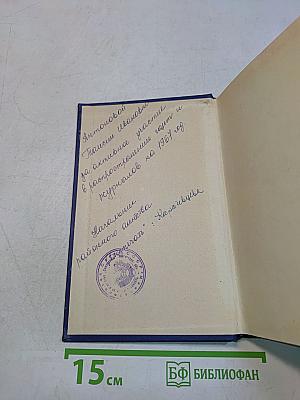 Антоновой
Таисии Ивановне
за активное участие
в распространении газет и
журналов на 1967 год.
Начальник
районного
печати"
15 см
БФ БИБЛИОФАН